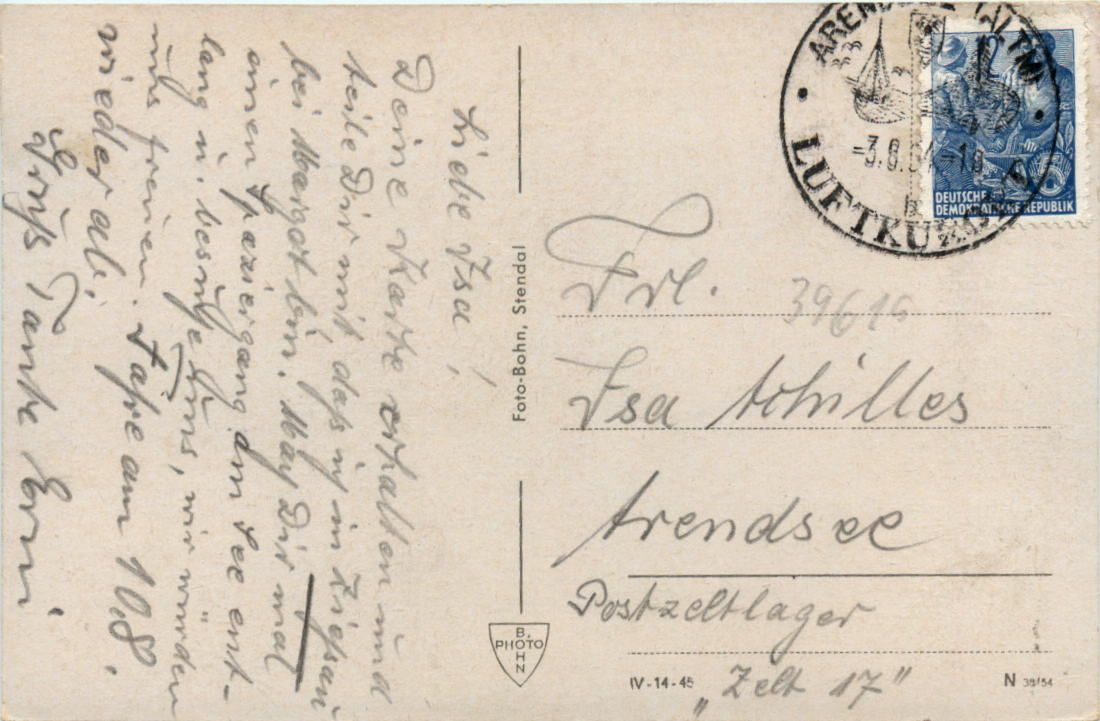 Liebe Isa!
Deine Karte erhalten und
teile Dir mit, daß ich in Ziessau
bei Margot bin. Mach Dir mal
einen Spaziergang am See ent-
lang u. besuche uns, wir würden
uns freuen. Fahre am 10.8.
wieder ab.
Gruß Tante Erni
Foto-Bohn, Stendal
B.
PHOTO
OHN
ARENDSEE (ALTM)
3.8.54-18
LUFTKURORT
DEUTSCHE
DEMOKRATISCHE REPUBLIK
Frl.
39615
Isa Achilles
Arendsee
Postzeltlager
"Zelt 17"
IV-14-45
N 38/54